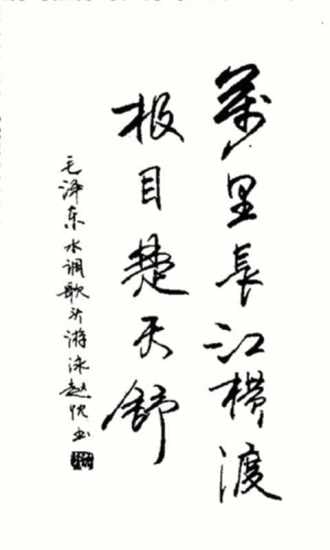 萬里長江横渡
极目楚天舒
毛泽东水调歌头游泳趙书